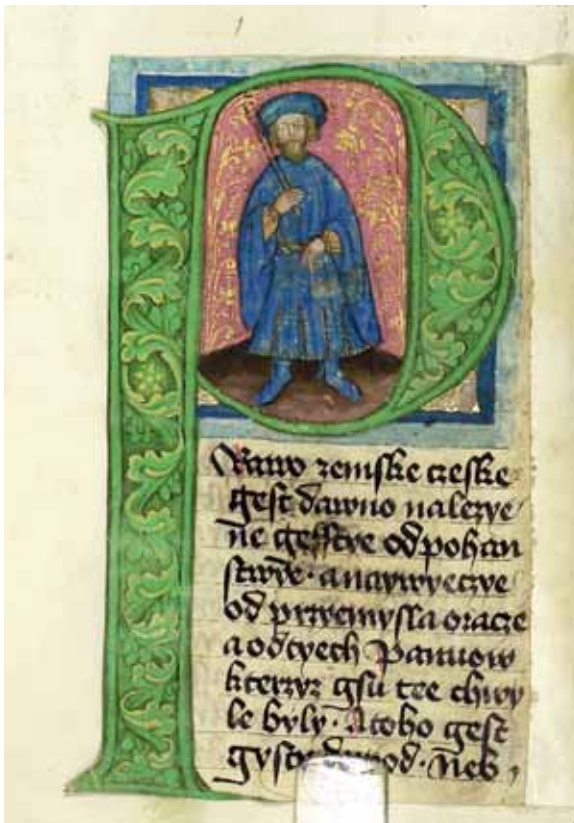 PRawo zemske czeske
gest dawno nalezye
ne gesstye od pohan
stwye · a naywyeczye
od przemysla oracze
a od tyech Panuow
kterzyz gsu tee chwy
le byly · A toho gest
gysty Neb ,